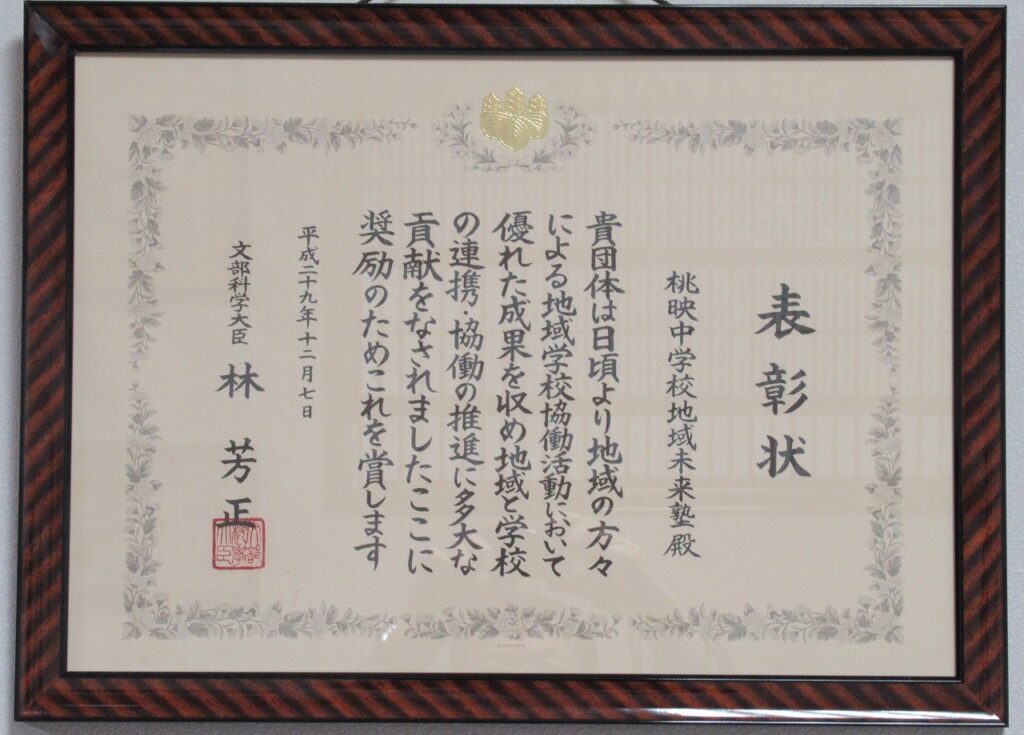 表彰状
桃映中学校地域未来塾殿
貴団体は日頃より地域の方々
による地域学校協働活動において
優れた成果を収め地域と学校
の連携・協働の推進に多大な
貢献をなされましたここに
奨励のためこれを賞します
平成二十九年十二月七日
文部科学大臣 林芳正